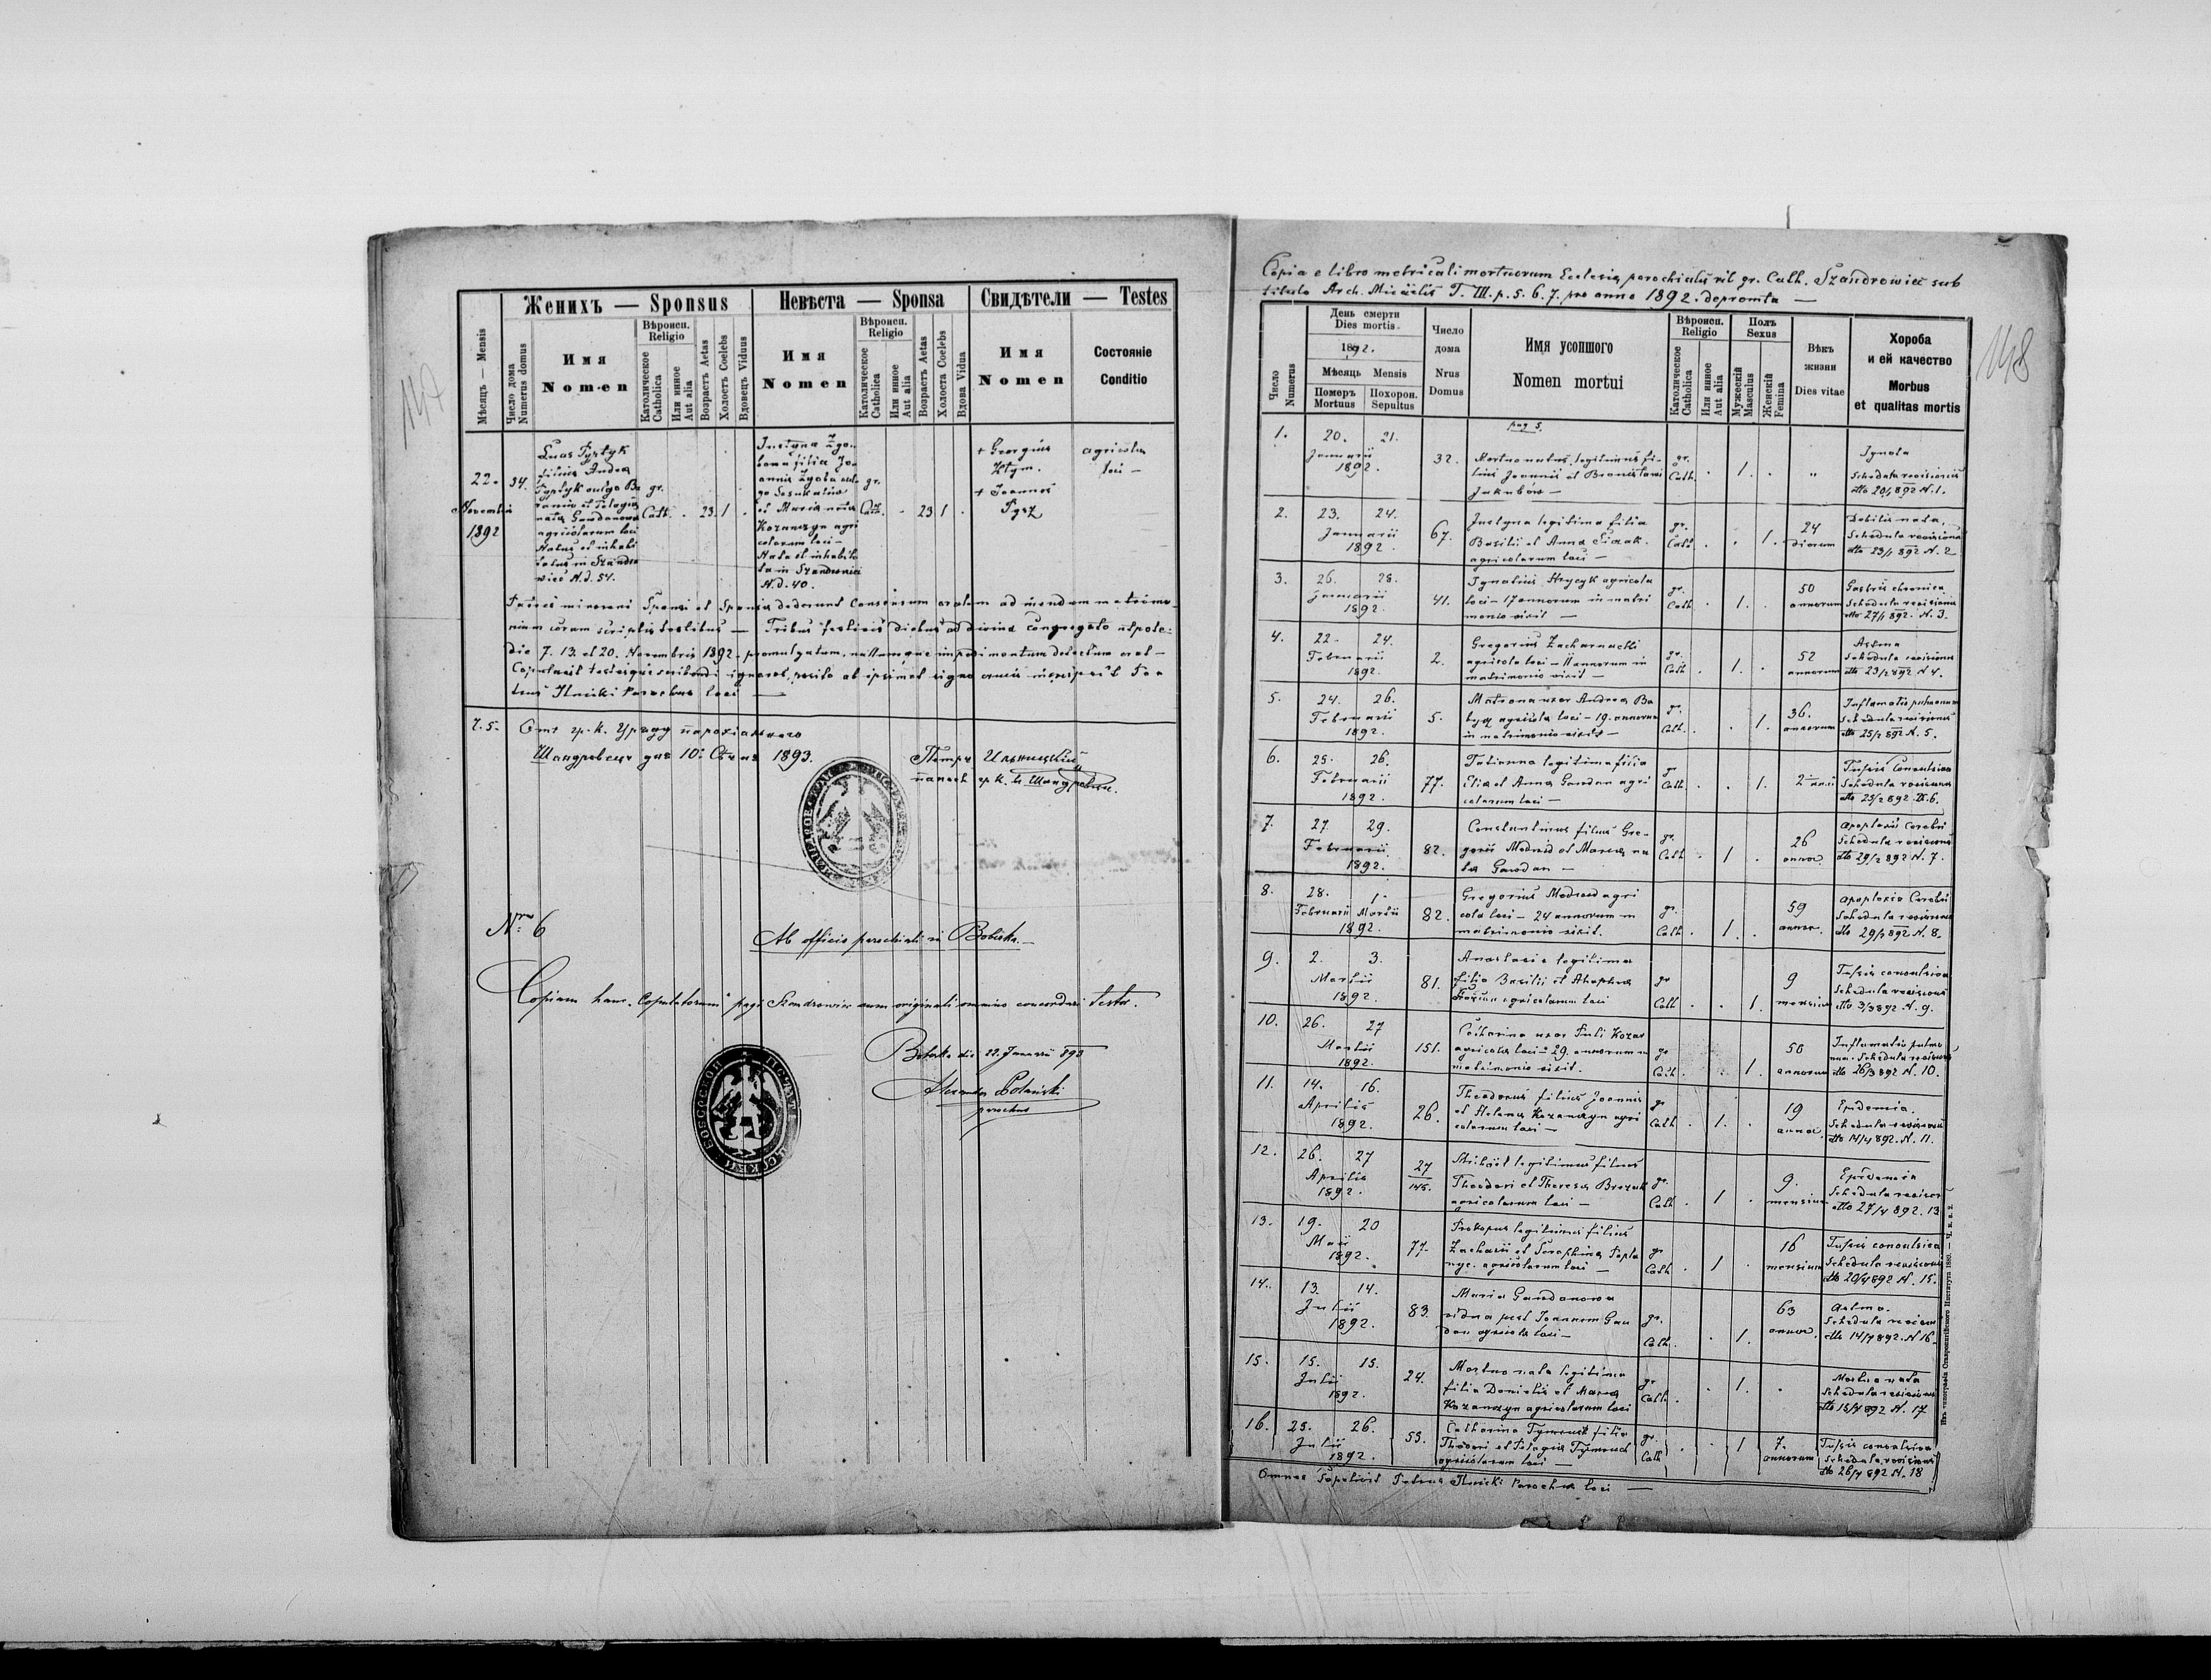 147
Женихъ — Sponsus
Невѣста — Sponsa
Свидѣтели — Testes
Мѣсяцъ — Mensis
Число дома
Numerus domus
Имя
Nomen
Вѣроисп.
Religio
Католическое
Catholica
Или инное
Aut alia
Возрастъ Aetas
Холостъ Coelebs
Вдовецъ Viduus
Имя
Nomen
Вѣроисп.
Religio
Католическое
Catholica
Или инное
Aut alia
Возрастъ Aetas
Холоста Coelebs
Вдова Vidua
Имя
Nomen
Состояніе
Conditio
22.
Novembris
1892
34.
Lucas Pyrtyk
filius Andreae
Pyrtyk vulgo Ba
rania et Pelagia
nata Gawdanowa
agricolarum loci
Natus et inhabi
tatus in Szandro
wiec N.d. 54.
gr.
Cath. . 23. 1 .
Justyna Zgo-
bowa filia Jo-
annis Zgoba vul-
go Sesukatów
et Maria nata
Kozanczyn agri
colarum loci –
Nata et inhabita
ta in Szandrowiec
N.d. 40.
gr.
Cath. - 23 1 .
+ Georgius
Ztym.
+ Joannes
Pyrz
agricolae
loci –
Patres minorenni Sponsi et Sponsae dederunt consensum oralem ad ineundum matrimo-
nium coram scriptis testibus — Tribus festivis diebus ad divina congregato utpote:
die 7. 13. et 20. Novembris 1892. promulgatum, nullumque impedimentum detectum erat –
Copulavit testesque scribendi ignaros, posito ab ipsismet signo crucis inscripsit Pe-
trus Ilnicki Parochus loci —
Z.5. Отъ гр. к. Уряду парохіального
Шандровець дня 10. Січня 1893.
Петръ Ильницкій
парох гр. к. въ Шандровци.
Nro 6
Ab officio parochiali in Boberka —
Copiam hanc "Copulatorum" pagi Szandrowiec cum originali omnino concordare testor.
Boberka die 22. Januarii 893
Alexander Polański
parochus
148
Copia e libro metricali mortuorum Ecclesiae parochialis rit. gr. Cath. Szandrowiec sub
titulo Arch. Michaelis T. III. p. 5. 6. 7. pro anno 1892. deprompta —
Число
Numerus
День смерти
Dies mortis.
1892.
Мѣсяць Mensis
Померъ
Mortuus
Похорон.
Sepultus
Число
дома
Nrus
Domus
Имя усопшого
Nomen mortui
Вѣроисп.
Religio
Католическое
Catholica
Или инное
Aut alia
Полъ
Sexus
Мужескій
Masculus
Женскій
Femina
Вѣкъ
жизни
Dies vitae
Хороба
и ей качество
Morbus
et qualitas mortis
pag 5.
1. 20. 21.
Januarii
1892.
32.
Mortuo natus, legitimus fi-
lius Joannis et Bronislawa
Jakubów —
gr.
Cath. . 1. . "
Ignota
Schedula revisionis
dto 20/1 892 N. 1.
2. 23. 24.
Januarii
1892.
67.
Justyna legitima filia
Basilii et Anna
agricolarum loci —
gr.
Cath . . 1.
24
dierum
Debilis nata,
Schedula revisionis
dto 23/1 892 N. 2
3. 26. 28.
Januarii
1892.
41.
Ignatius Hrycyk agricola
loci – 17 annorum in matri
monio vixit —
gr.
Cath . 1. .
50
annorum
Gastris chronica
Schedula revisionis
dto 27/1 892. N. 3.
4. 22. 24.
Februarii
1892.
2.
Gregorius Zacharnacki
agricola loci – 11 annorum in
matrimonio vixit —
gr.
Cath . 1. .
52
annorum
Astma
Schedula revisionis
dto 23/2 892 N 4.
5. 24. 26.
Februarii
1892.
5.
Matrona uxor Andrea Ba
byz agricola loci – 19. annorum
in matrimonio vixit —
gr.
Cath. . . 1.
36.
annorum
Inflamatio pulmonum
Schedula revisionis
dto 25/2 892 N. 5.
6. 25. 26.
Februarii
1892.
77.
Tatianna legitima filia
Elia et Anna Gawdan agri
colarum loci —
gr
Cath . . 1.
2 anni
Tussis convulsiva
Schedula revisionis
dto 25/2 892. N. 6.
7. 27. 29.
Februarii
1892.
82.
Constantinus filius Gre-
gorii Medwid et Maria na
ta Gawdan —
gr.
Cath . 1 .
26
annor.
Apoplexii Cerebri
Schedula revisionis
dto 29/2 892 N. 7.
8. 28. 1.
Februarii Martii
1892.
82.
Gregorius Medwid agri
cola loci – 24 annorum in
matrimonio vixit.
gr.
Cath . 1. .
59
annor.
Apoplexio Cerebri
Schedula revisionis
dto 29/2 892 N. 8.
9. 2. 3.
Martii
1892.
81.
Anastasia legitima
filia Basilii et Ahaphia
agricolarum loci
gr
Cath . . 1.
9
mensium
Tussis convulsiva
Schedula revisionis
dto 3/3 892 N. 9.
10. 26. 27
Martii
1892.
151.
Catharina uxor Pauli Kozar
agricola loci – 29. annorum in
matrimonio vixit.
gr
Cath . . 1.
50
annorum
Inflamatio pulmo
num. Schedula revisionis
dto 26/3 892 N. 10.
11. 14. 16.
Aprilis
1892.
26.
Theodorus filius Joannis
et Helena Kozanczyn agri
colarum loci —
gr
Cath . 1. .
19
annor.
Epidemia.
Schedula revisionis
dto 14/4 892. N. 11.
12. 26. 27
Aprilis
1892.
27
145.
Michaël legitimus filius
Theodori et Theresa
agricolarum loci —
gr.
Cath . 1 .
9.
mensium
Epidemia
Schedula revision
dto 27/4 892. 13
13. 19. 20
Maii
1892.
77.
Prokopus legitimus filius
Zacharii et Seraphina
agricolarum loci —
gr
Cath . 1 .
16
mensium
Tussis convulsiva
Schedula revisionis
dto 20/4 892 N. 15.
14. 13. 14.
Julii
1892.
83.
Maria Gawdanowa
vidua post Joannem Gau
dan agricola loci —
gr.
Cath. . 1.
63
annor.
Astma.
Schedula revision
dto 14/7 892. N 16.
15. 15. 15.
Julii
1892.
24.
Mortuo nata legitima
filia Danielis et Maria
Kozanczyn agricolarum loci
gr
Cath. . 1. .
Mortuo nata
Schedula revisionis
dto 15/7 892 N. 17
16. 25. 26.
Julii
1892.
55.
Catharina filia
Theodori et Pelagia
agricolarum loci —
gr.
Cath . . 1
7.
annorum
Tussis convulsiva
Schedula revisionis
dto 26/7 892 N. 18
Omnes Sepelivit Petrus Ilnicki Parochus loci —
Изъ типографіи Ставропигійского Института 1889.